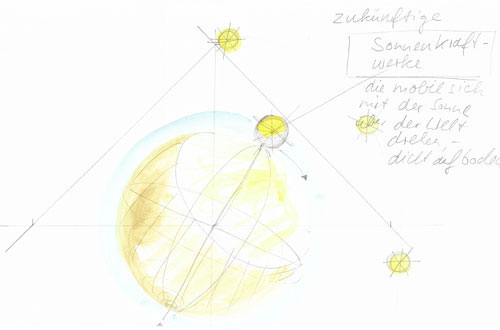 zukünftige
Sonnenkraft-
werke
die mobil sich
mit der Sonne
über der Welt
drehen -
dicht auf